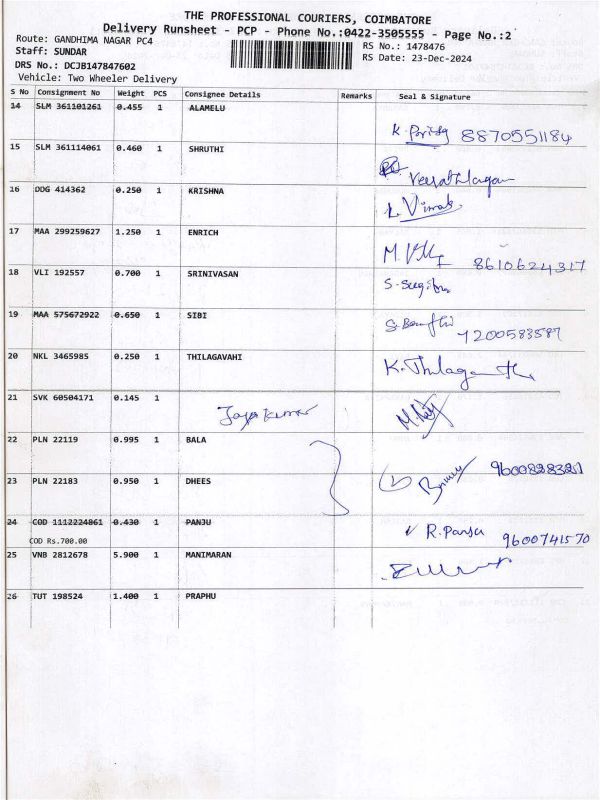 THE PROFESSIONAL COURIERS, COIMBATORE
Delivery Runsheet - PCP - Phone No.:0422-3505555 - Page No.:2
Route: GANDHIMA NAGAR PC4
RS No.: 1478476
Staff: SUNDAR
RS Date: 23-Dec-2024
DRS No.: DCJB147847602
Vehicle: Two Wheeler Delivery
S No Consignment No Weight PCS Consignee Details Remarks Seal & Signature
14 SLM 361101261 0.455 1 ALAMELU
8870551184
15 SLM 361114061 0.460 1 SHRUTHI
16 DDG 414362 0.250 1 KRISHNA
17 MAA 299259627 1.250 1 ENRICH
8610624317
18 VLI 192557 0.700 1 SRINIVASAN
19 MAA 575672922 0.650 1 SIBI
7200583587
20 NKL 3465985 0.250 1 THILAGAVAHI
21 SVK 60504171 0.145 1
Jayakumar
22 PLN 22119 0.995 1 BALA
23 PLN 22183 0.950 1 DHEES
24 COD 1112224861 0.430 1 PANJU
R. Panju 9600741570
COD Rs.700.00
25 VNB 2812678 5.900 1 MANIMARAN
26 TUT 198524 1.400 1 PRAPHU